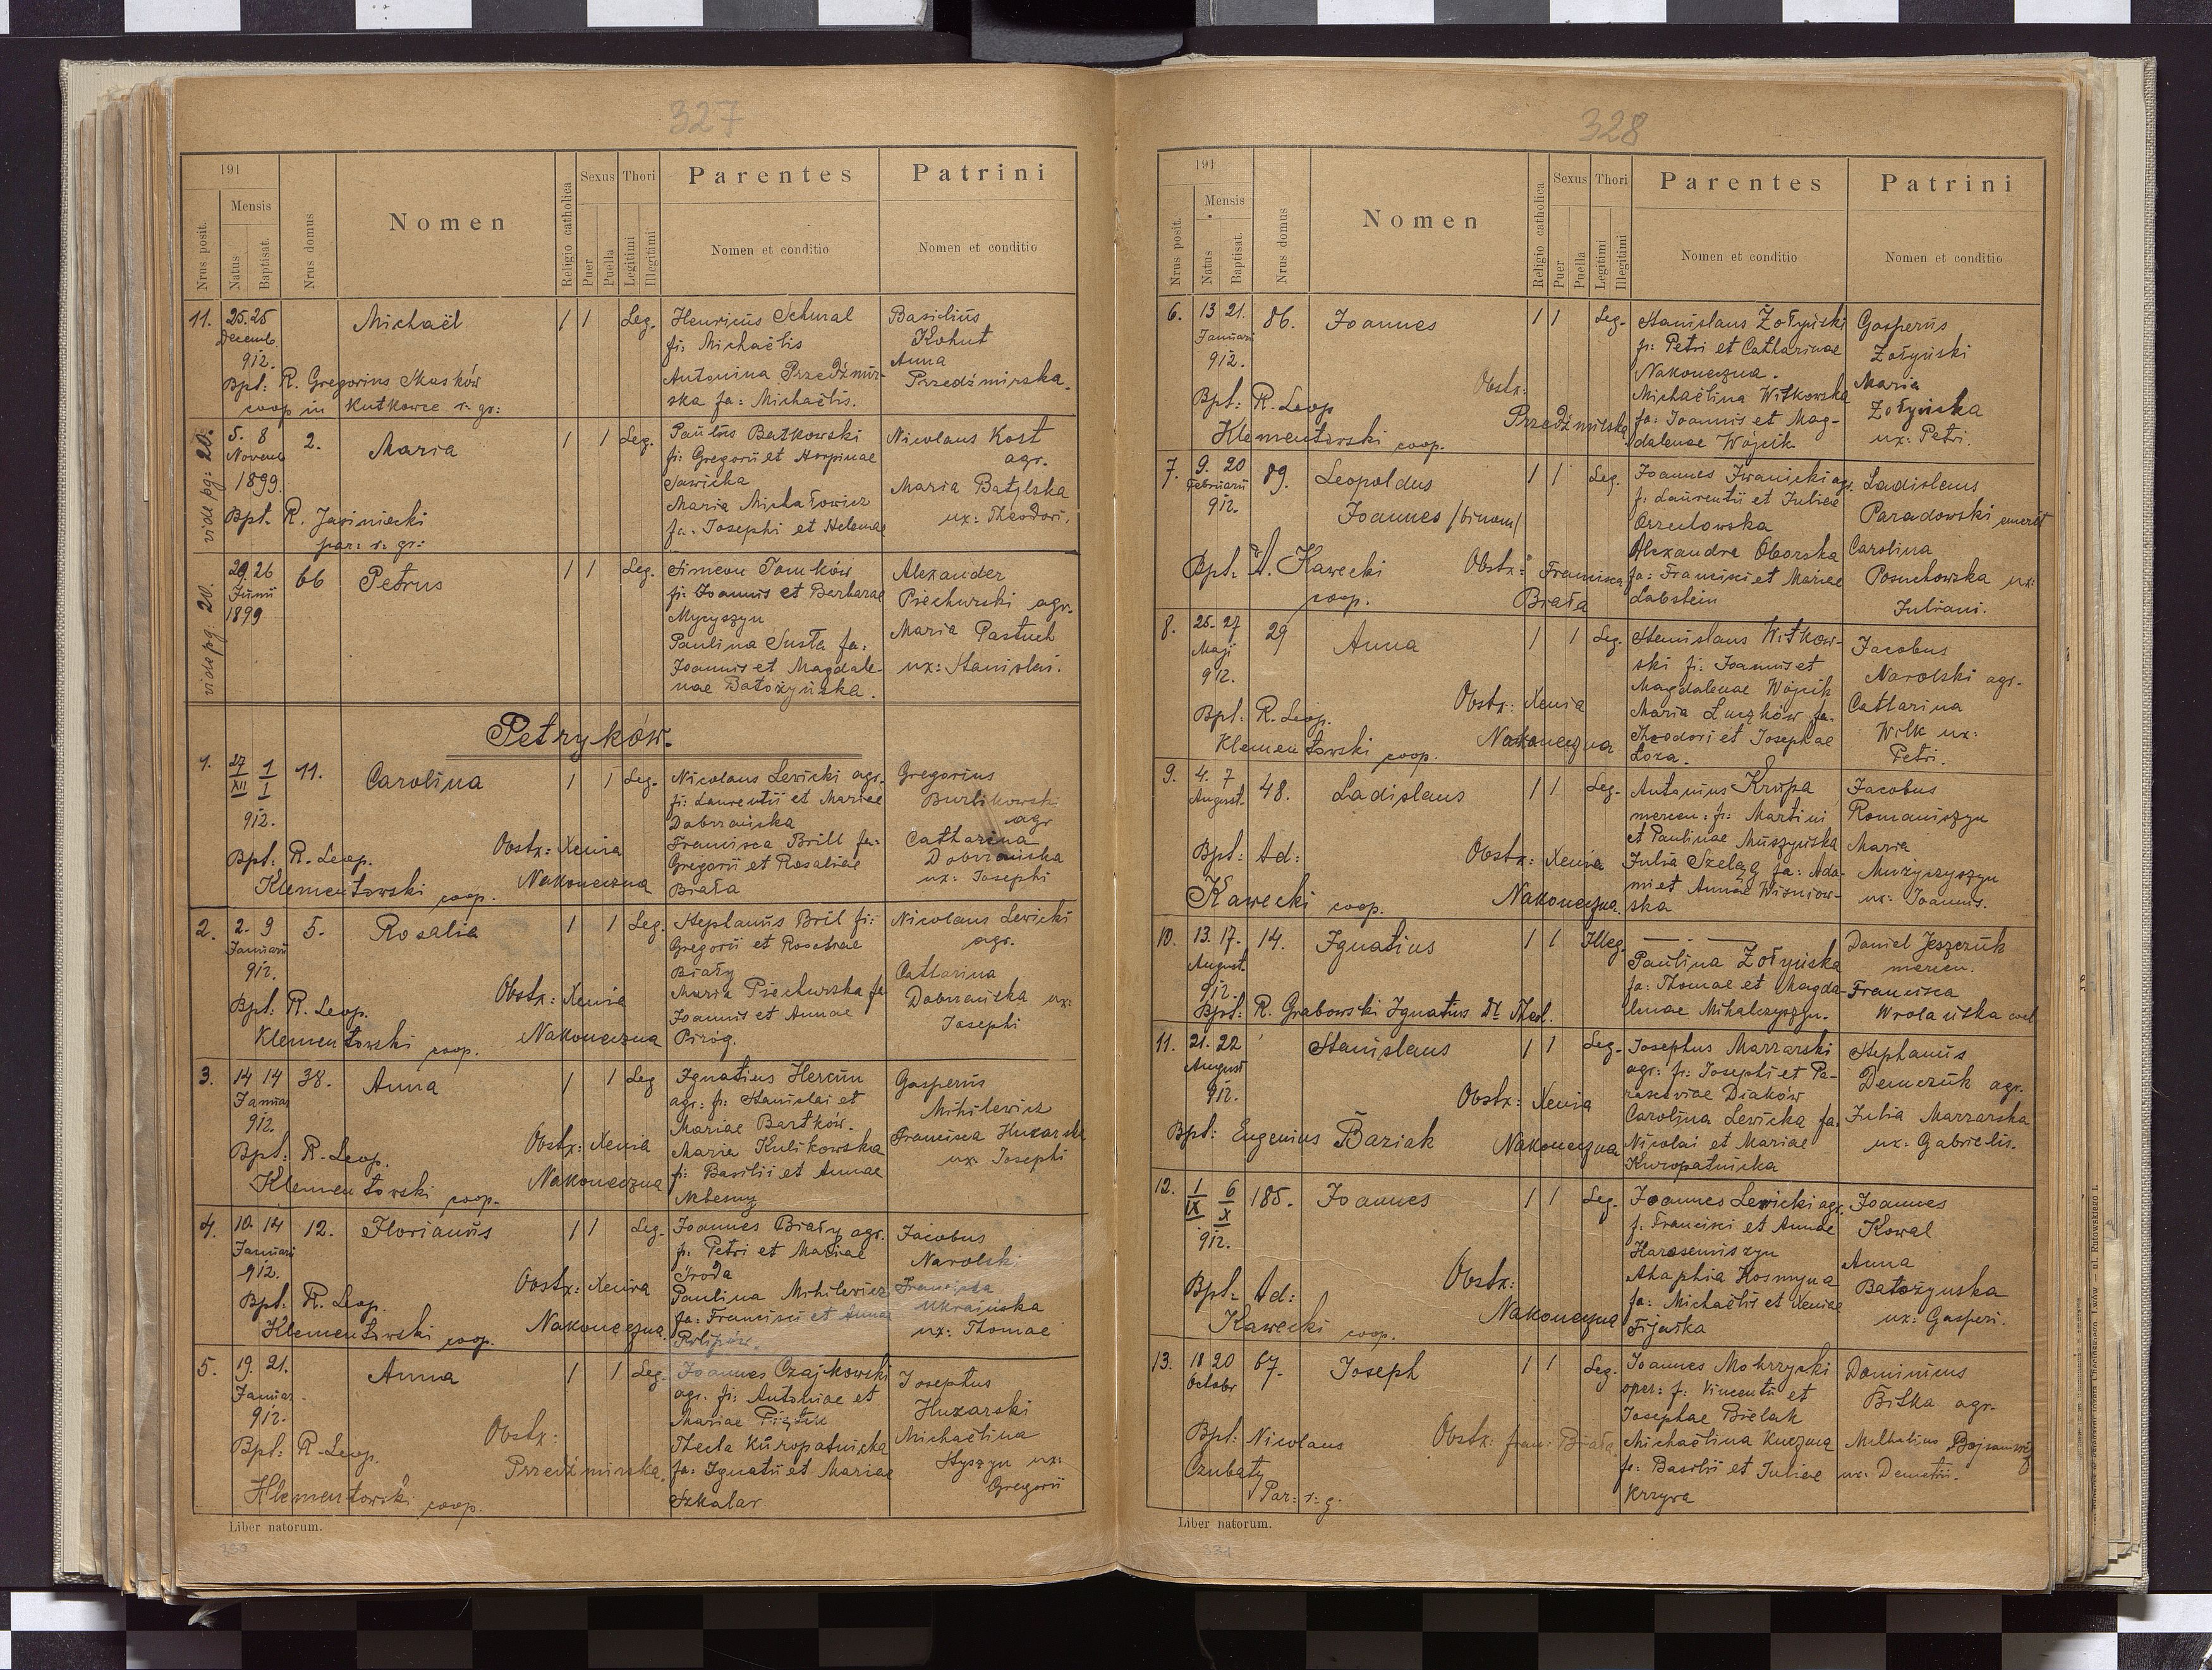 327
191
Nrus posit.
Mensis
Natus
Baptisat.
Nrus domus
Nomen
Religio catholica
Sexus
Puer
Puella
Thori
Legitimi
Illegitimi
Parentes
Nomen et conditio
Patrini
Nomen et conditio
11. 25. 25 Michaël 1 1 Leg. Henricus Schmal Basilius
Decemb. fi: Michaëlis Kohut
912. Antonina Przedźmir- Anna
Bpt: R. Gregorius ska fa: Michaëlis. Przedźmirska.
coop in Kutkowce r. gr:
vide pg: 20.
5. 8 2. Maria 1 1 Leg. Paulus Batkowski Nicolaus Kost
Novemb fi: Gregorii et Horpinae agr.
1899. Sawicka Maria Batylska
Bpt. R. Jasiniecki Maria Michałowicz ux: Theodori.
par: r. gr: fa. Josephi et Helenae
vide pg: 20.
29. 26 66 Petrus 1 1 Leg. Simeon Tomków Alexander
Junii fi: Joannis et Barbarae Piechurski agr.
1899 Mycyszyn Maria Pastuch
Paulina Susła fa: ux: Stanislai.
Joannis et Magdale-
nae Batożyńska.
Petryków.
1. 27/XII 1/I 11. Carolina 1 1 Leg. Nicolaus Lewicki agr. Gregorius
912. fi: Laurentii et Mariae Burlikowski
Dobrzańska agr
Francisca Brill fa: Catharina
Bpt: R. Leop. Obstx: Xenia Gregorii et Rosaliae Dobrzańska
Klementowski coop. Nakoneczna Biała ux: Josephi
2. 2. 9 5. Rosalia 1 1 Leg. Stephanus Bril fi: Nicolaus Lewicki
Januarii Gregorii et Rosaliae agr.
912. Biały Catharina
Obstx: Xenia Maria Piechurska fa Dobrzańska ux:
Bpt: R. Leop. Joannis et Annae Josephi
Klementowski coop. Nakoneczna Piróg.
3. 14 14 38. Anna 1 1 Leg Ignatius Hercun Gasperus
Januar agr: fi: Stanislai et Mihilewicz
912. Mariae Bartków. Francisca Huzarska
Bpt: R. Leop. Obstx: Xenia Maria Kulikowska ux: Josephi
Klementowski coop. Nakoneczna fi: Basilii et Annae
Nebesny
4. 10. 14 12. Florianus 1 1 Leg. Joannes Biały agr. Jacobus
Januari fi: Petri et Mariae Narolski
912. Środa Francisca
Bpt: R. Leop. Obstx: Xenia Paulina Mihilewicz Ukraińska
Klementowski coop. Nakoneczna. fa: Francisci et Annae ux: Thomae
5. 19. 21. Anna 1 1 Leg. Joannes Czajkowski Josephus
Januar. agr. fi: Antoniae et Huzarski
912. Mariae Piątek Michaëlina
Bpt: R. Leop. Obstx: Thecla Kuropatnicka Styszyn ux:
Klementowski coop. Przedźmirska. fa: Ignatii et Mariae Gregorii
Szkalar
Liber natorum.
328
191
Nrus posit.
Mensis
Natus
Baptisat.
Nrus domus
Nomen
Religio catholica
Sexus
Puer
Puella
Thori
Legitimi
Illegitimi
Parentes
Nomen et conditio
Patrini
Nomen et conditio
6. 13 21. 86. Joannes 1 1 Leg- Stanislaus Żołyński Gasperus
Januari fi: Petri et Catharinae Żołyński
912. Nakoneczna. Maria
Obstx: Michaëlina Witkowska Żołyńska
Bpt: R. Leop Przedźmirska fa: Joannis et Mag- ux: Petri.
Klementowski coop. dalenae Wójcik
7. 9. 20 89. Leopoldus 1 1 Leg. Joannes Iwanicki agr. Ladislaus
Februarii Joannes /binom/ f. Laurentii et Juliae Paradowski emerit
912. Orzechowska Carolina
Bpt: A. Kawecki Obstx: Francisca Alexandra Oborska Posuchowska ux:
coop. Biała fa: Francisci et Mariae Juliani.
Labstein
8. 25. 27 29 Anna 1 1 Leg. Stanislaus Witkow- Jacobus
Maji ski fi: Joannis et Narolski agr.
912. Magdalenae Wójcik Catharina
Bpt: R. Leop. Obstx: Xenia Maria Luczków fa. Wilk ux:
Klementowski coop. Nakoneczna Theodori et Josephae Petri.
Łoza.
9. 4. 7 48. Ladislaus 1 1 Leg- Antonius Krupa Jacobus
August. mercen: fi: Martini Romaniszyn
et Paulinae Muszyńska Maria
Bpt: Ad: Obstx: Xenia Julia Szeląg fa: Ada- Muzyczyszyn
Kawecki coop. Nakoneczna. mi et Annae Wiśniow- ux: Joannis.
ska
10. 13. 17. 14. Ignatius 1 1 Illeg. — . — Daniel Jeszczuk
August. Paulina Żołyńska mercen.
912. fa: Thomae et Magda- Francisca
Bpt: R. Grabowski Ignatius Dr. Theol. lenae Mihalczyszyn.
11. 21. 22 Stanislaus 1 1 Leg- Josephus Marzarski Stephanus
August agr: fi: Josephi et Pa- Demczuk agr.
912. Obstx: Xenia rascewiae Diaków Julia Marzarska
Bpt: Eugenius Baziak Nakoneczna Carolina Lewicka fa. ux: Gabrielis.
Nicolai et Mariae
Kuropatnicka
12. 1/IX 6/X 185. Joannes 1 1 Leg- Joannes Lewicki agr. Joannes
912. f. Francisci et Annae Kowal
Harasemiszyn Anna
Bpt: Ad: Obstx: Ahaphia Kosmyna Batożynska
Kawecki coop. Nakoneczna fa: Michaëlis et Xeniae ux: Gasperi.
13. 18 20 67. Joseph 1 1 Leg. Joannes Mokrzycki Dominicus
Octobr oper: f: Vincentii et Bitka agr.
Josephae Bielak
Bpt: Nicolaus Obstx: Fran: Biała Michaëlina Kuczma
Czubaty fa: Basilii et Juliae ux: Demetrii.
Par: r. g. Krzywa
Liber natorum.